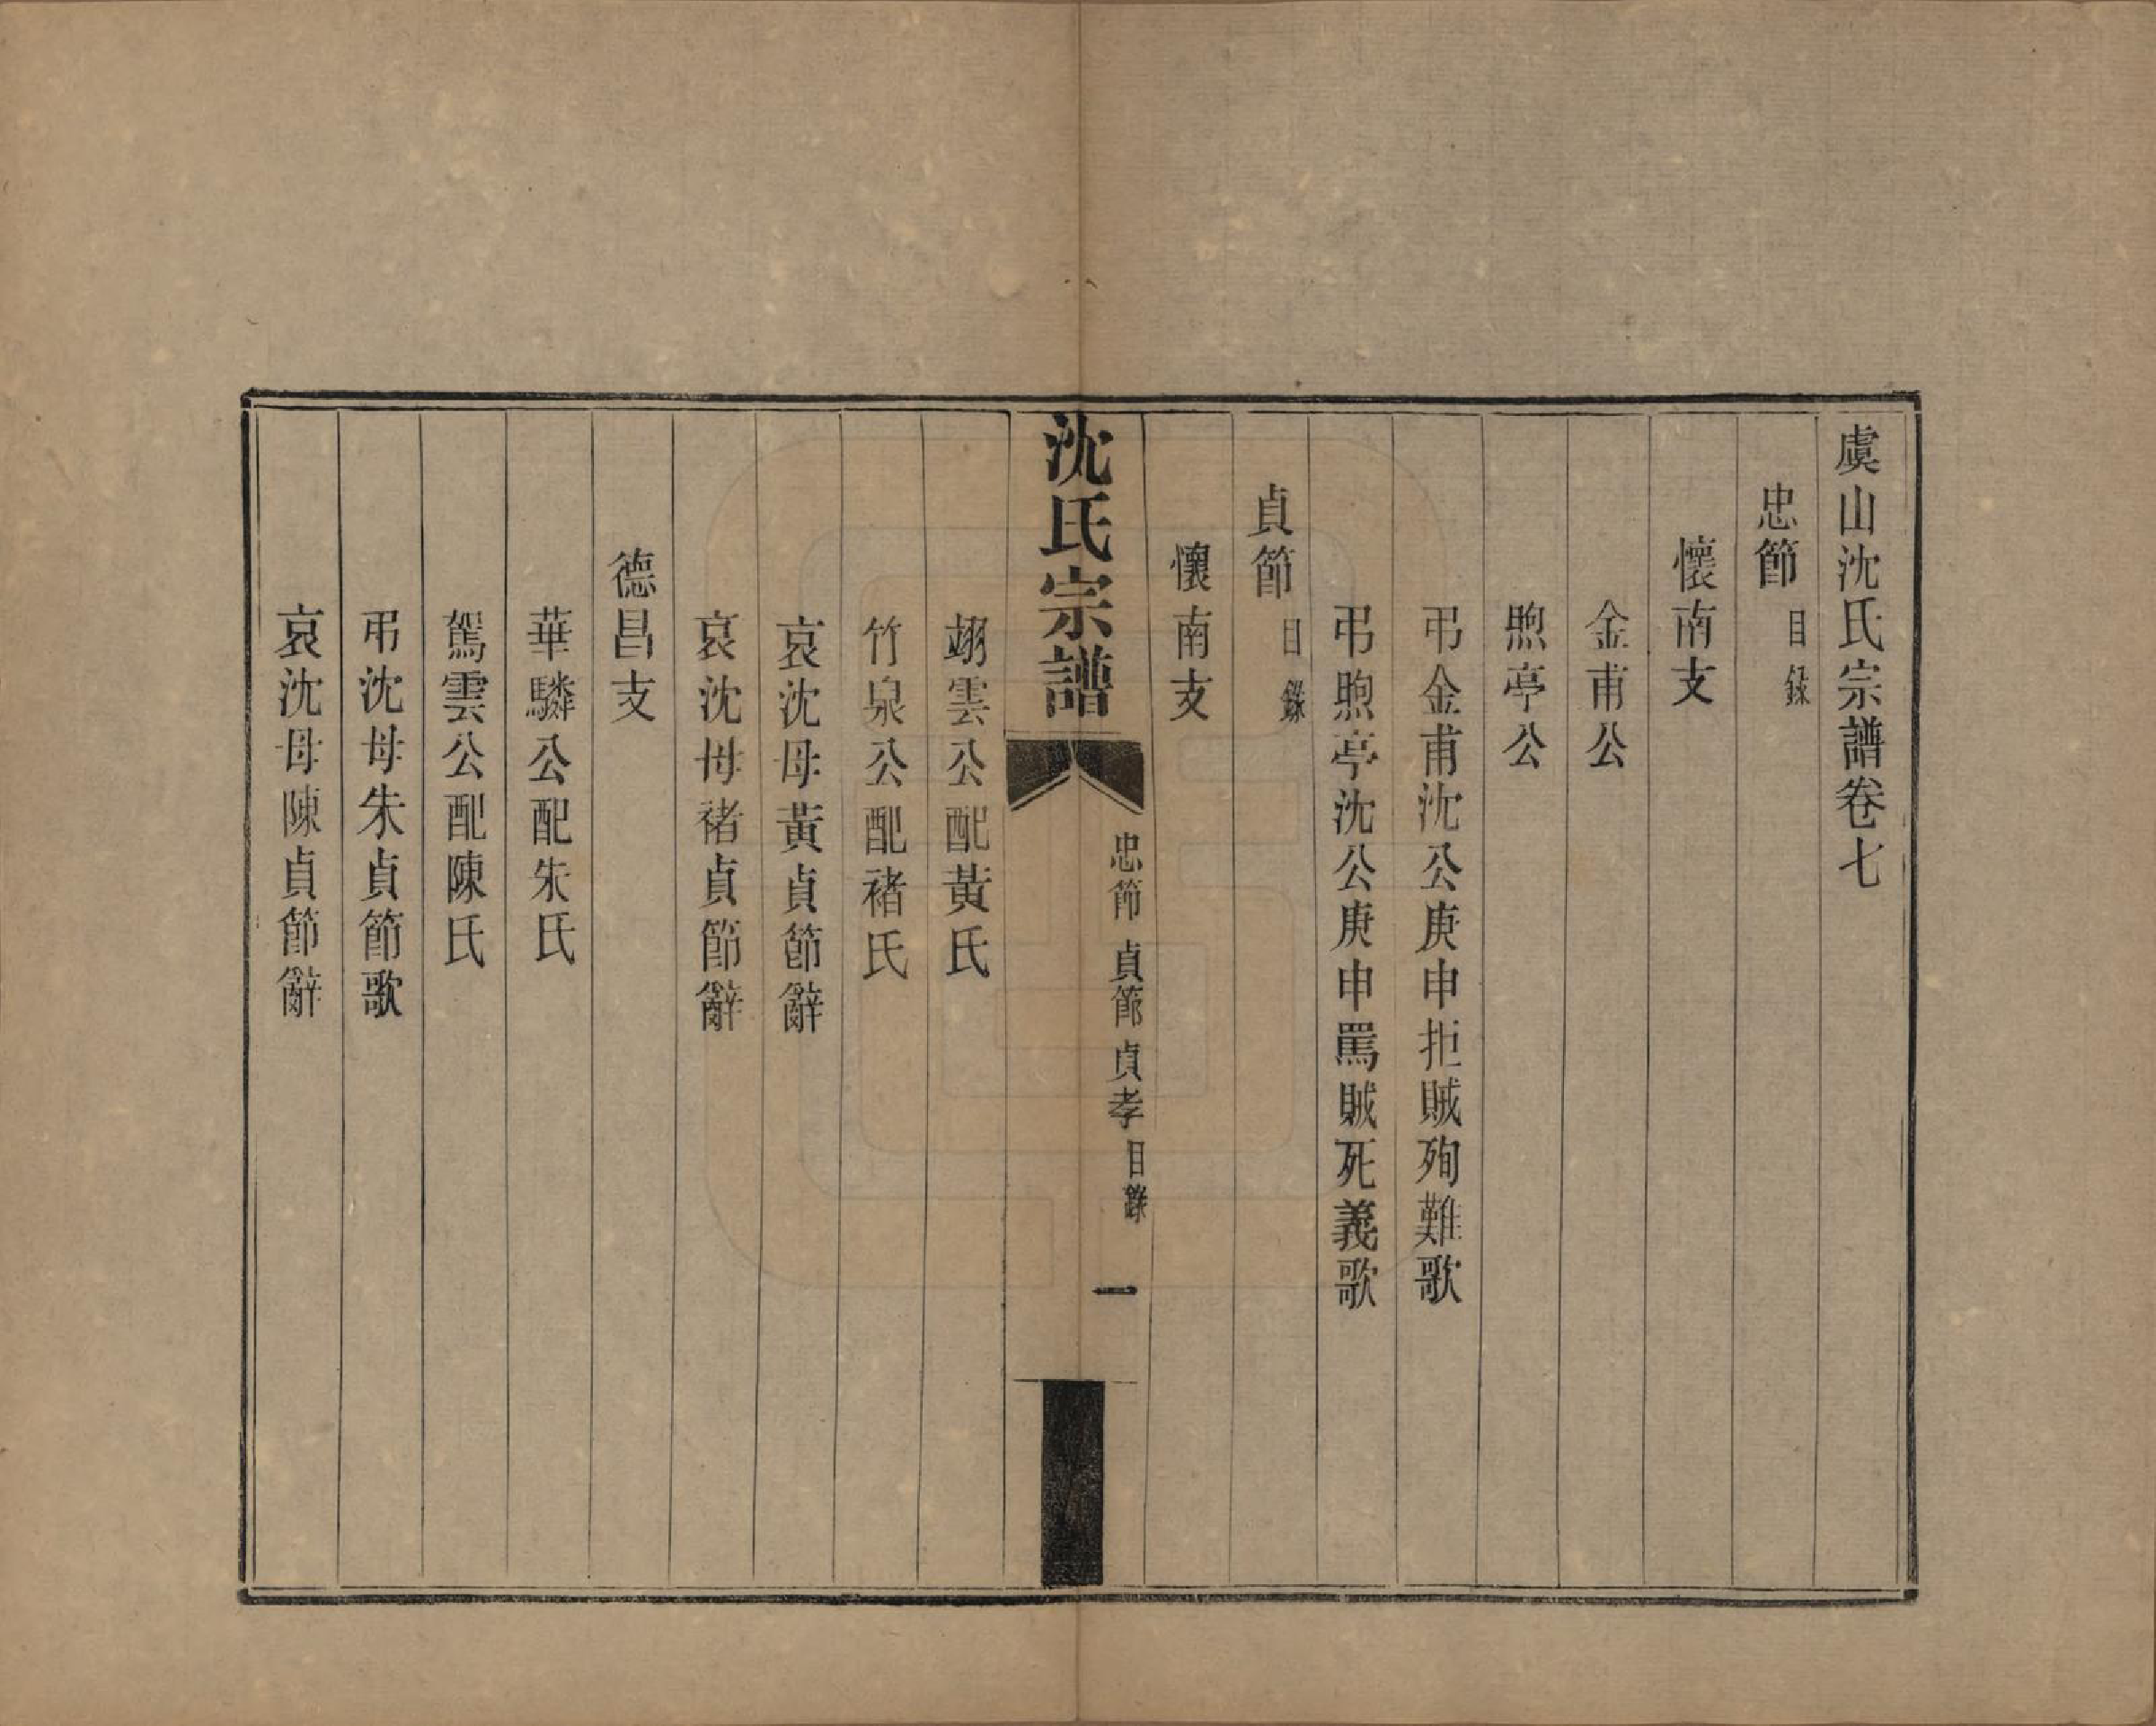 虞山沈氏宗譜卷七
忠節目錄
懷南支
金甫公
煦亭公
弔金甫沈公庚申拒賊殉難歌
弔煦亭沈公庚申罵賊死義歌
貞節目錄
懷南支
沈氏宗譜
忠節 貞節 貞孝目錄
一
翊雲公配黃氏
竹泉公配褚氏
哀沈母黃貞節辭
哀沈母褚貞節辭
德昌支
華驎公配朱氏
駕雲公配陳氏
弔沈母朱貞節歌
哀沈母陳貞節辭